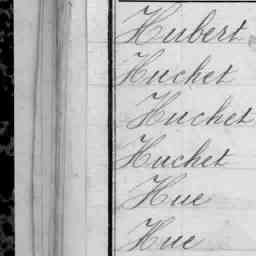 Hubert
Huchet
Huchet
Huchet
Hue
Hue